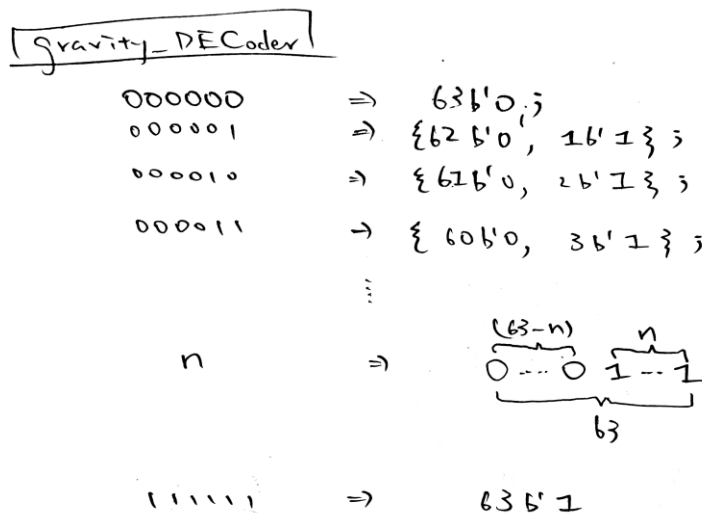 gravity_DECoder
000000 ⇒ 63b'0;
000001 ⇒ {62b'0, 1b'1};
000010 ⇒ {61b'0, 2b'1};
000011 → {60b'0, 3b'1};
⋮
(63-n) n
n ⇒ 0 ---- 0 1 --- 1
63
111111 ⇒ 63b'1